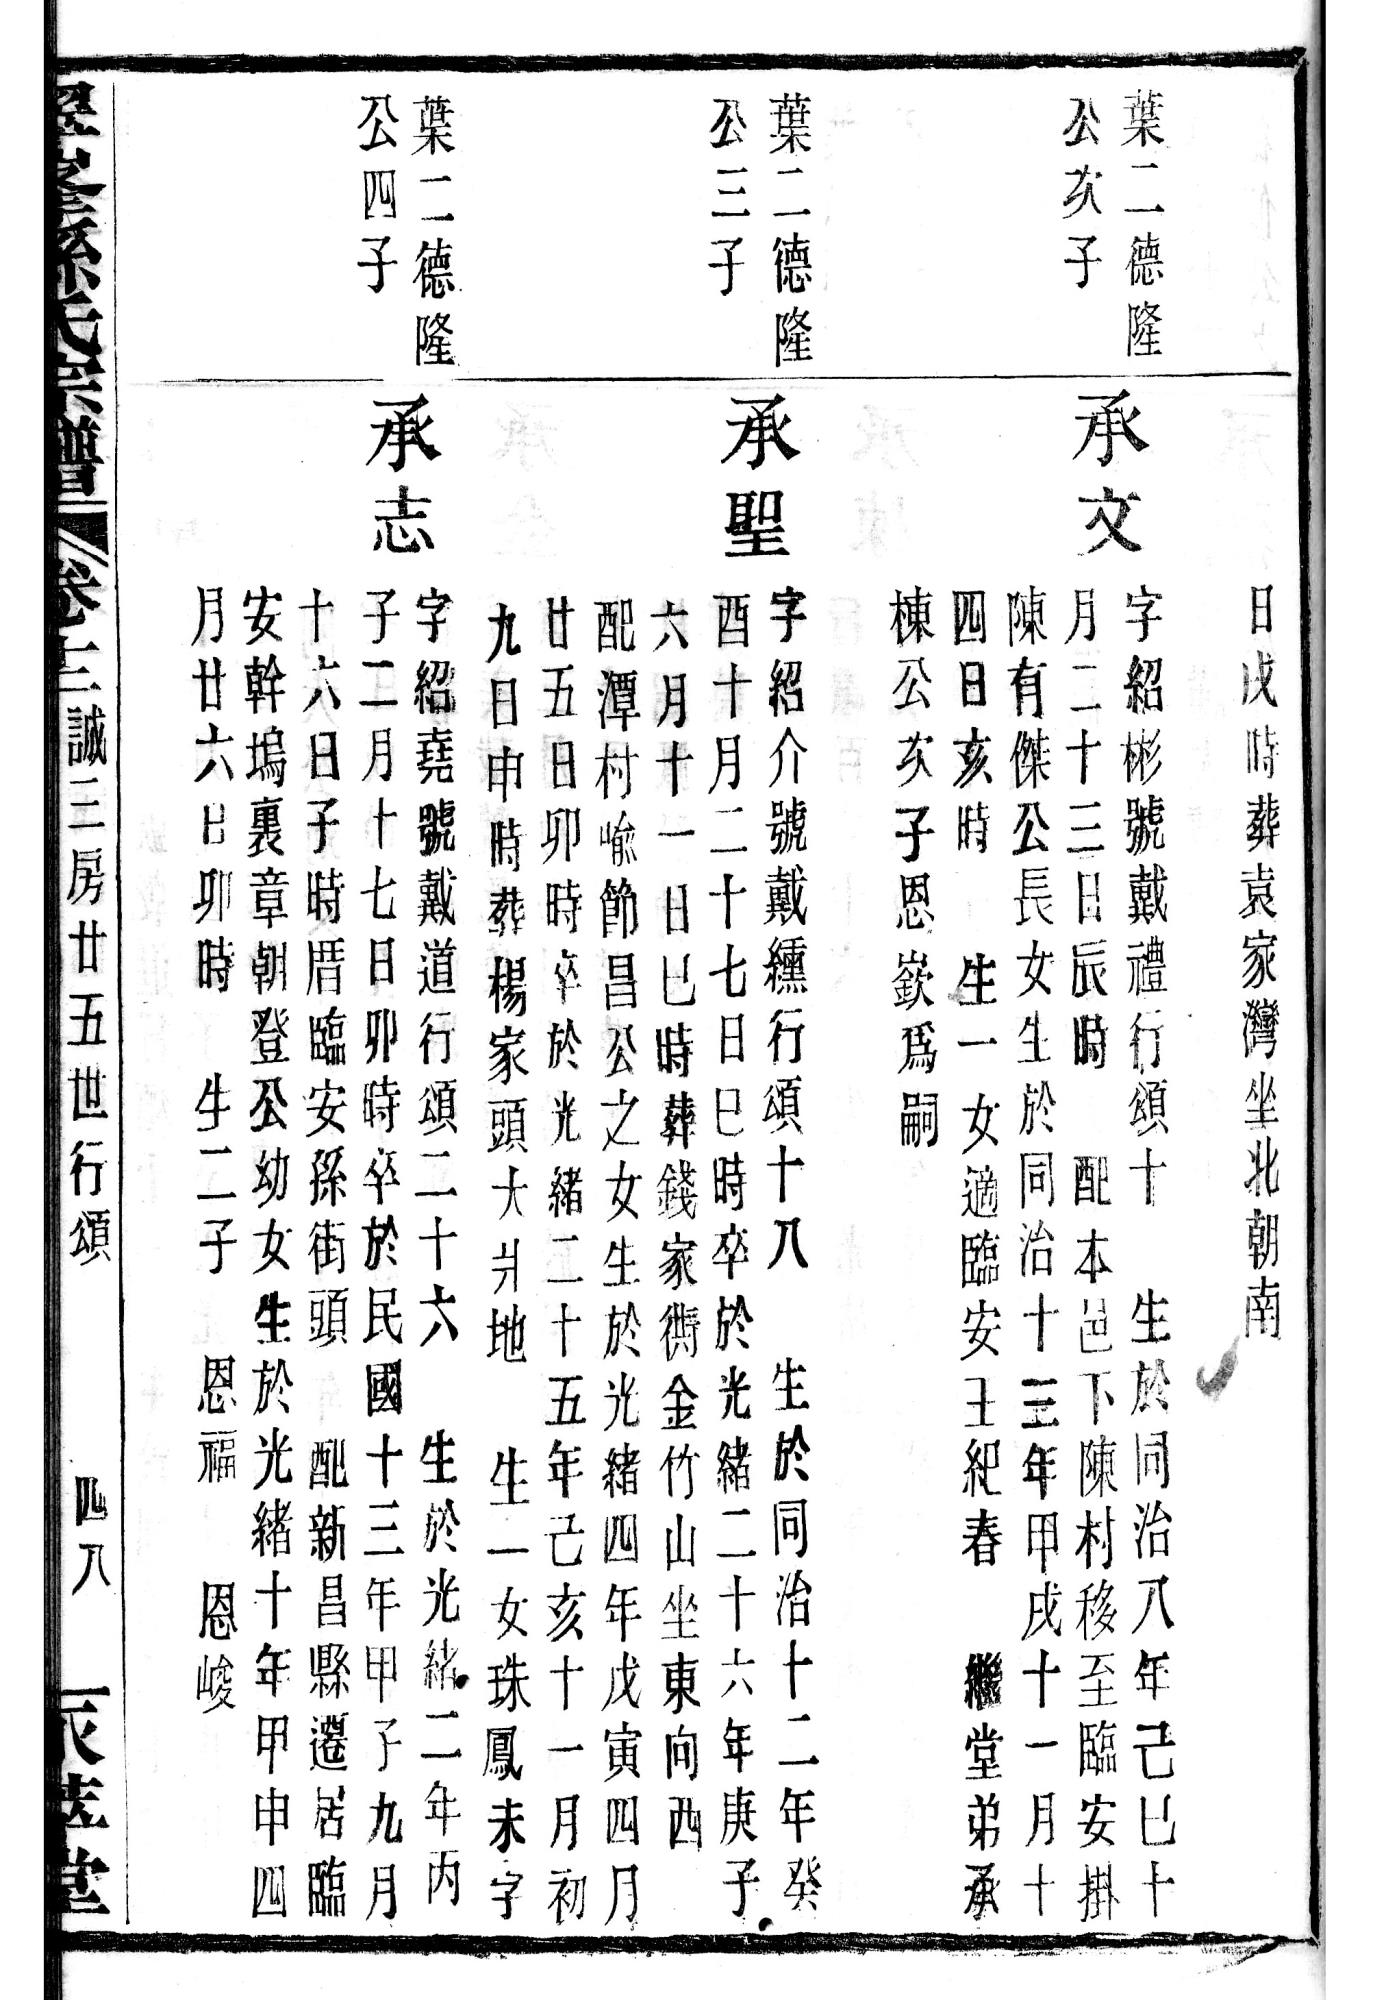 日戌時葬袁家灣坐北朝南
葉二德隆
公次子
承文
字紹彬號戴禮行頌十　生於同治八年己巳十
月二十三日辰時　配本邑下陳村移至臨安掛
陳有傑公長女生於同治十三年甲戌十一月十
四日亥時　生一女適臨安王紀春　繼堂弟承
棟公次子恩嶔爲嗣
葉二德隆
公三子
承聖
字紹介號戴纁行頌十八　生於同治十二年癸
酉十月二十七日巳時卒於光緒二十六年庚子
六月十一日巳時葬錢家衖金竹山坐東向西
配潭村喻節昌公之女生於光緒四年戊寅四月
廿五日卯時卒於光緒二十五年己亥十一月初
九日申時葬楊家頭大爿地　生一女珠鳳未字
葉二德隆
公四子
承志
字紹堯號戴道行頌二十六　生於光緒二年丙
子二月十七日卯時卒於民國十三年甲子九月
十六日子時厝臨安孫街頭　配新昌縣遷居臨
安幹塢裏章朝登公幼女生於光緒十年甲申四
月廿六日卯時　生二子　恩福　恩峻
孫氏宗譜　卷十三　誠三房廿五世行頌　四八　堂